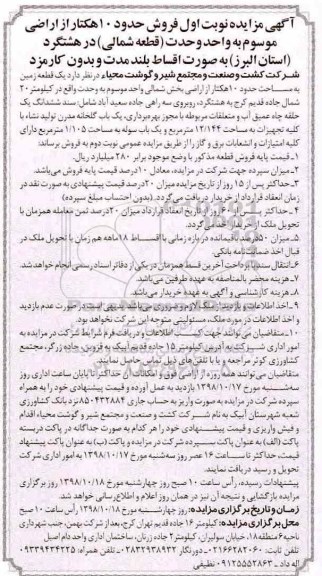 آگهی مزایده نوبت اول فروش حدود ۱۰هکتار از اراضی
موسوم به واحد وحدت (قطعه شمالی) در هشتگرد
(استان البرز) به صورت اقساط بلند مدت و بدون کارمزد
شرکت کشت و صنعت و مجتمع شیر و گوشت محیاء در نظر دارد یک قطعه زمین
به مساحت حدود ۱۰هکتار از اراضی بخش شمالی واحد موسوم به وحدت واقع در کیلومتر ۲۰
شمال جاده قدیم کرج به هشتگرد، روبروی سه راهی جاده سعید آباد شامل: سند ششدانگ یک
حلقه چاه عمیق آب و متعلقات مربوطه با مجوز بهره‌برداری، یک باب گلخانه مدرن تولید نشاء با
کلیه تجهیزات به مساحت ۱۲/۱۴۴ مترمربع و یک باب سوله به مساحت ۱/۱۰۵ مترمربع دارای
کلیه امتیازات و انشعابات برق و گاز را از طریق مزایده عمومی نوبت دوم به فروش برساند:
۱ـ قیمت پایه فروش قطعه مذکور با وضع موجود برابر ۲۸۰ میلیارد ریال.
۲ـ میزان سپرده جهت شرکت در مزایده، معادل ۱۰درصد قیمت پایه فروش می‌باشد.
۳ـ حداکثر پس از ۱۵ روز از تاریخ مزایده میزان ۲۰درصد قیمت پیشنهادی به صورت نقد در
زمان انعقاد قرارداد از خریدار دریافت می‌گردد. (بدون احتساب مبلغ سپرده)
۴ـ حداکثر پس از ۶۰ روز از تاریخ انعقاد قرارداد میزان ۲۰درصد ثمن معامله همزمان با
تحویل ملک از خریدار اخذ می‌گردد.
۵ـ میزان ۵۰درصد باقیمانده در بازه زمانی با اقساط ۱۸ماهه هم زمان با تحویل ملک در
قبال اخذ ضمانت‌نامه بانکی.
۶ـ انتقال سند با پرداخت آخرین قسط همزمان در یکی از دفاتر اسناد رسمی انجام خواهد شد.
۷ـ هزینه محضر بالمناصفه به عهده طرفین می‌باشد.
۸ـ هزینه کارشناسی و آگهی به عهده خریدار می‌باشد.
۹ـ اخذ اطلاعات و بازدید از ملک الزامی و ضروری می‌باشد بدیهی است در صورت عدم بازدید
و اخذ اطلاعات در مورد ملک، مسئولیتی متوجه این شرکت نخواهد بود.
۱۰ـ متقاضیان می‌توانند جهت کسب اطلاعات و دریافت فرم شرایط شرکت در مزایده به
امور اداری شرکت به آدرس کیلومتر ۱۵ جاده قدیم آبیک به قزوین، جاده زرگر، مجتمع
کشاورزی کوثر مراجعه و یا با تلفن‌های ذیل تماس حاصل نمایند.
متقاضیان می‌توانند همه روزه از اراضی فوق و امکانات آن حداکثر تا پایان ساعت اداری روز
سه‌شنبه مورخ ۱۳۹۸/۱۰/۱۷ بازدید به عمل آورده و قیمت پیشنهادی خود را به همراه
سپرده شرکت در مزایده به صورت واریز به حساب جاری ۸۵۰۴۳۲۸۸۴نزد بانک کشاورزی
شعبه شهرستان آبیک به نام شرکت کشت و صنعت و مجتمع شیر و گوشت محیاء اقدام
و فیش واریزی و قیمت پیشنهادی خود را هر کدام به صورت جداگانه در پاکت دربسته
پاکت (الف) به عنوان پاکت سپرده شرکت در مزایده و پاکت (ب) به عنوان پاکت پیشنهاد
قیمت، حداکثر تا ساعت ۱۶ عصر روز سه‌شنبه مورخ ۱۳۹۸/۱۰/۱۷ به امور اداری شرکت
تحویل و رسید دریافت نمایند.
پیشنهادات رسیده، رأس ساعت ۱۰ صبح روز چهارشنبه مورخ ۱۳۹۸/۱۰/۱۸ روز برگزاری
مزایده بازگشایی و نتیجه آن نیز در همان روز اعلام و اطلاع‌رسانی خواهد شد.
زمان و تاریخ برگزاری مزایده: روز چهارشنبه مورخ ۱۳۹۸/۱۰/۱۸ رأس ساعت ۱۰ صبح
محل برگزاری مزایده: کیلومتر ۱۶ جاده قدیم تهران کرج، بعد از شرکت بهمن، جنب شهرداری
ناحیه۶منطقه۱۸، خیابان سولیران، کیلومتر۲ جاده زرنان، ساختمان اداری واحد دام اصیل
تلفن ثابت: ۰۲۱۶۶۲۸۲۰۶۰ـ دورنگار ۰۲۸۳۲۹۳۸۹۳۲ـ تلفن همراه: ۰۹۳۳۹۴۳۴۲۲۵
اله داد ـ ۰۹۱۲۵۵۵۲۸۶۳ نظیفی